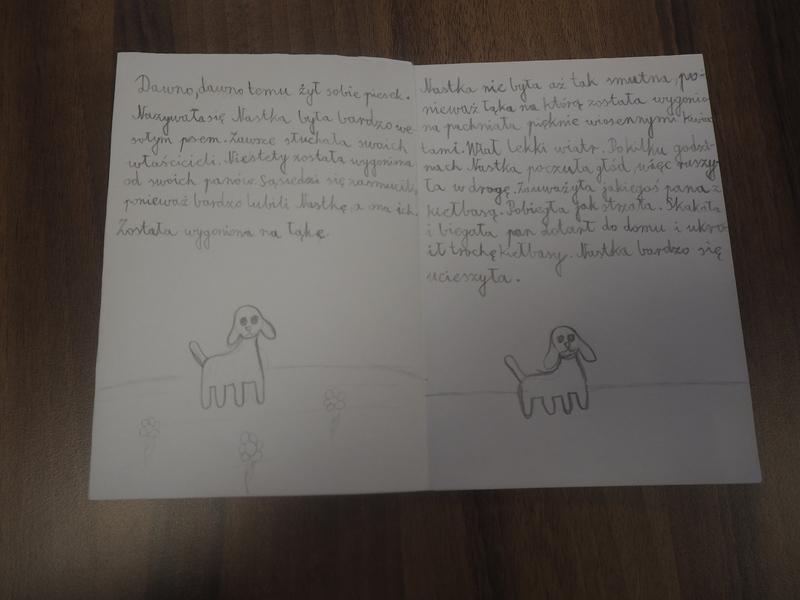 Dawno, dawno temu żył sobie piesek.
Nazywała się Nastka była bardzo we-
sołym psem. Zawsze słuchała swoich
właścicieli. Niestety została wygoniona
od swoich panów. Sąsiedzi się zasmucili,
ponieważ bardzo lubili Nastkę, a ona ich.
Została wygoniona na łąkę.
Nastka nie była aż tak smutna, po-
nieważ łąka na którą została wygonio-
na pachniała pięknie wiosennymi kwia
tami. Wiał lekki wiatr. Po kilku godzi-
nach Nastka poczuła głód, więc ruszy-
ła w drogę. Zauważyła jakiegoś pana z
kiełbasą. Pobiegła jak strzała. Skakała
i biegała pan dotarł do domu i ukro
ił trochę kiełbasy. Nastka bardzo się
ucieszyła.